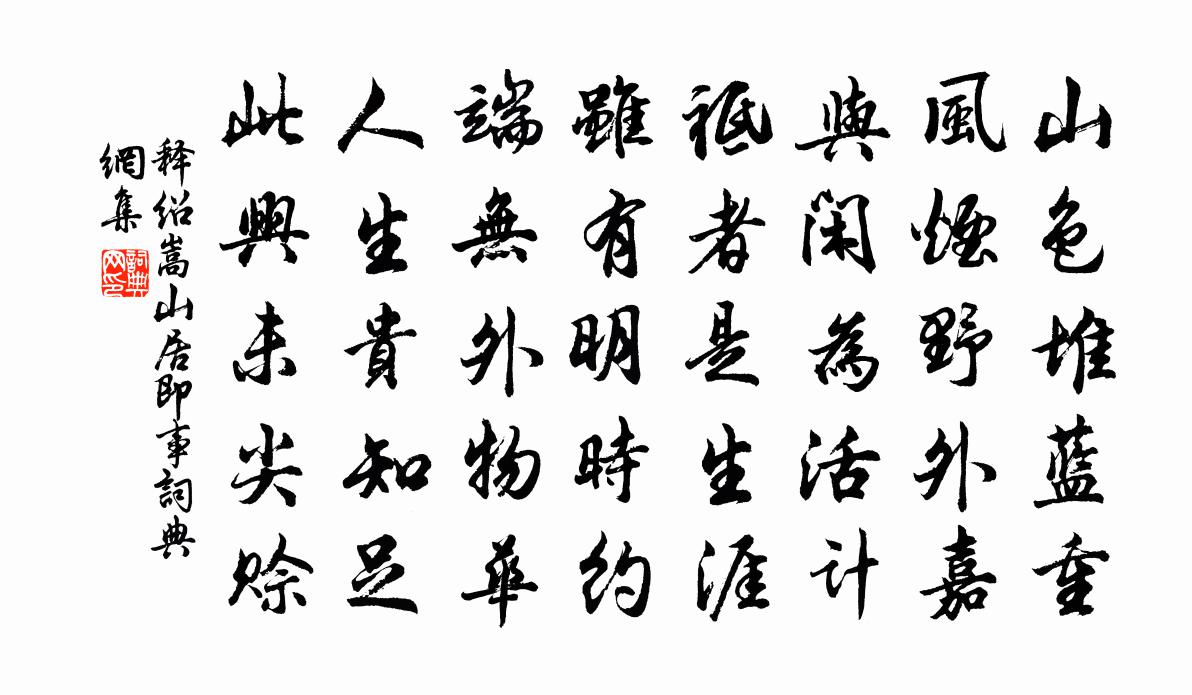 山色堆藍重
風煙野外嘉
與閑為活計
祗者是生涯
雖有明時約
端無外物華
人生貴知足
此興未尖賒
释绍嵩山居即事詞典
網集
詞典
网印